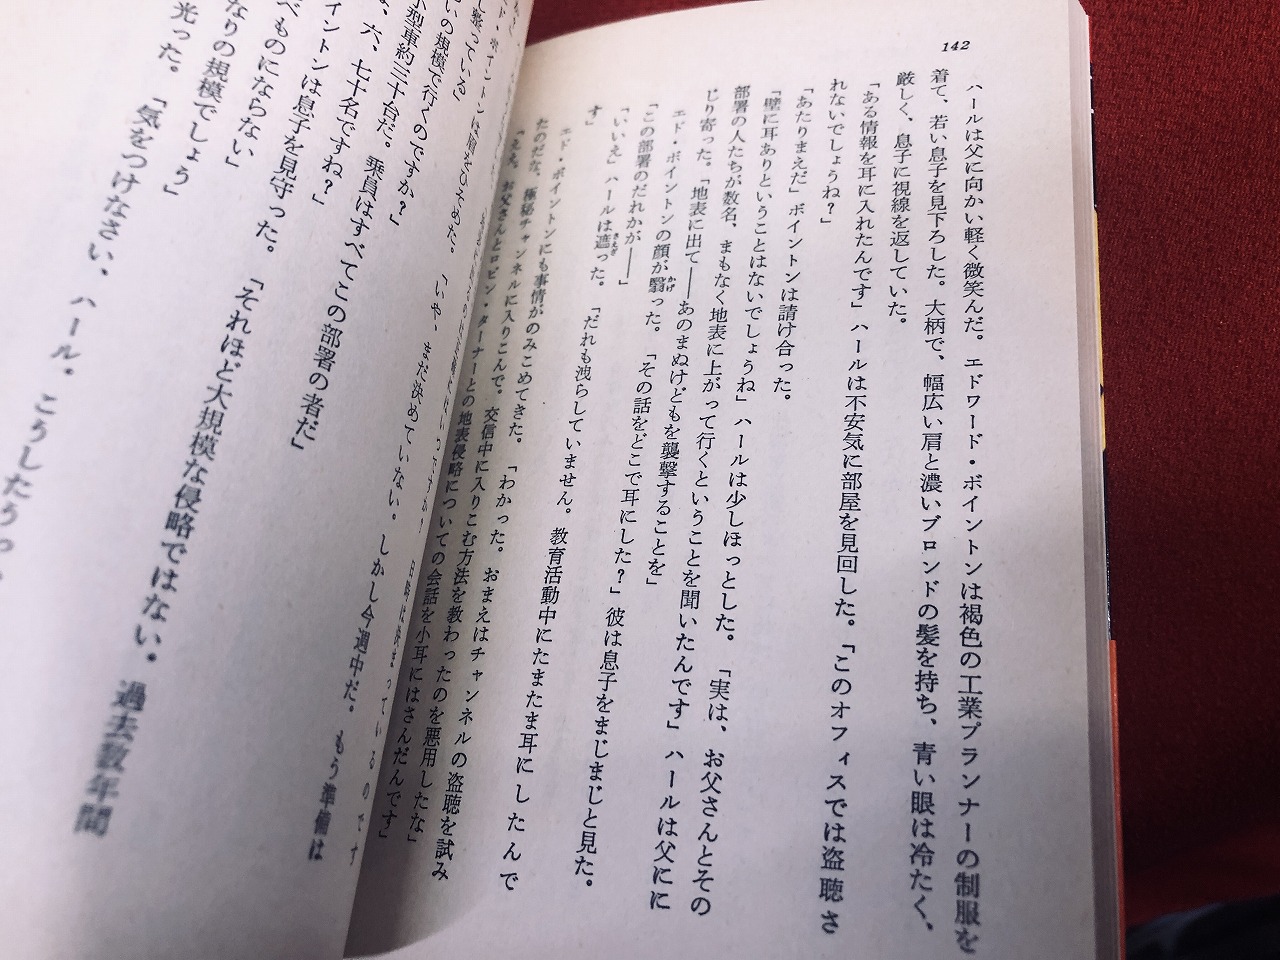 142
ハールは父に向かい軽く微笑んだ。エドワード・ボイントンは褐色の工業プランナーの制服を
着て、若い息子を見下ろした。大柄で、幅広い肩と濃いブロンドの髪を持ち、青い眼は冷たく、
厳しく、息子に視線を返していた。
「ある情報を耳に入れたんです」ハールは不安気に部屋を見回した。「このオフィスでは盗聴さ
れないでしょうね?」
「あたりまえだ」ボイントンは請け合った。
「壁に耳ありということはないでしょうね」ハールは少しほっとした。「実は、お父さんとその
部署の人たちが数名、まもなく地表に上がって行くということを聞いたんです」ハールは父にに
じり寄った。「地表に出て――あのまぬけどもを襲撃することを」
エド・ボイントンの顔が翳った。「その話をどこで耳にした?」彼は息子をまじまじと見た。
「この部署のだれかが――」
「いいえ」ハールは遮った。「だれも洩らしていません。教育活動中にたまたま耳にしたんで
す」
エド・ボイントンにも事情がのみこめてきた。「わかった。おまえはチャンネルの盗聴を試み
たのだな、極秘チャンネルに入りこんで。交信中に入りこむ方法を教わったのを悪用したな」
「ええ。お父さんとロビン・ターナーとの地表侵略についての会話を小耳にはさんだんです」
ボイントンは眉をひそめた。「いや、まだ決めていない。しかし今週中だ。もう準備は
整っている」
いの規模で行くのですか?」
小型車約三十台だ。乗員はすべてこの部署の者だ」
六、七十名ですね?」
イントンは息子を見守った。「それほど大規模な侵略ではない。過去数年間
べものにならない」
なりの規模でしょう」
光った。「気をつけなさい、ハール。こうした